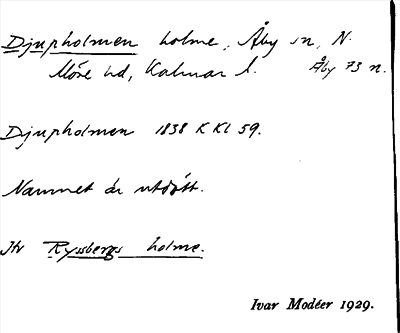 Djupholmen holme, Åby sn, N.
Möre hd, Kalmar l. Åby 73 n.
Djupholmen 1838 K Kl 59.
Namnet är utdött.
Jfr Ryssbergs holme.
Ivar Modéer 1929.